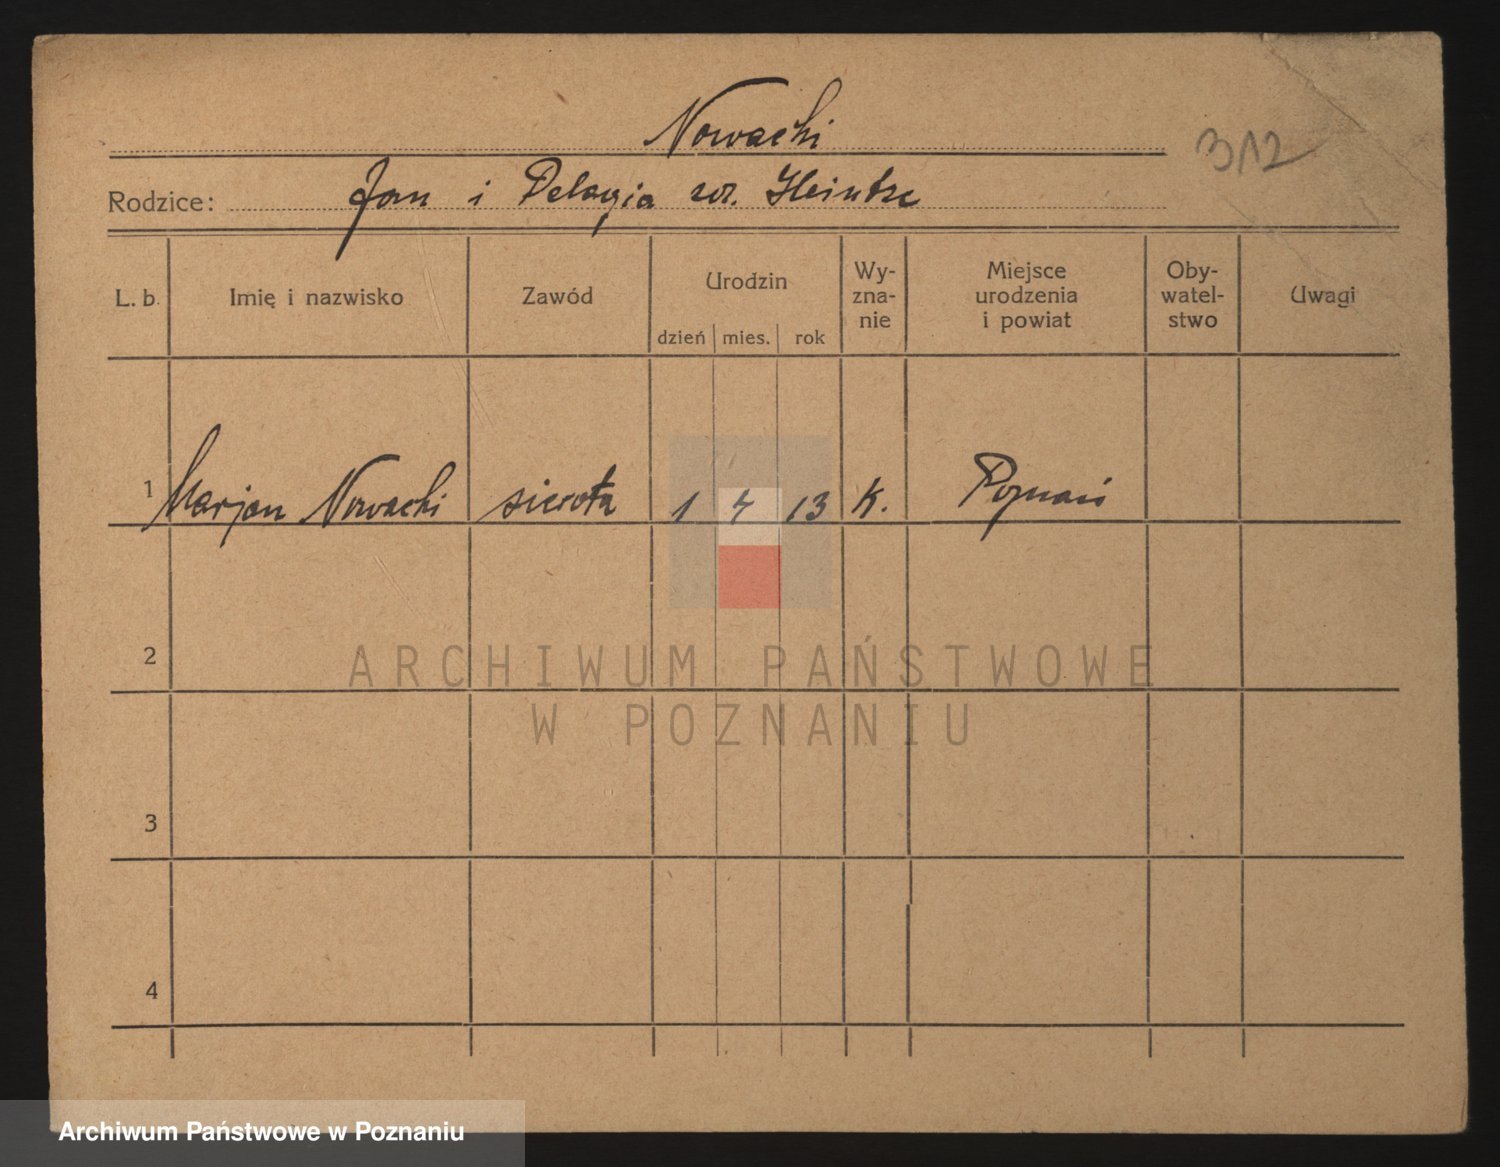 Nowacki
312
Rodzice: Jan i Pelagja zd. Heintze
L. b. Imię i nazwisko Zawód Urodzin dzień mies. rok Wy-zna-nie Miejsce urodzenia i powiat Oby-watel-stwo Uwagi
1 Marjan Nowacki sierota 1 4 13 K. Poznań
2
ARCHIWUM PAŃSTWOWE
W POZNANIU
3
4
Archiwum Państwowe w Poznaniu